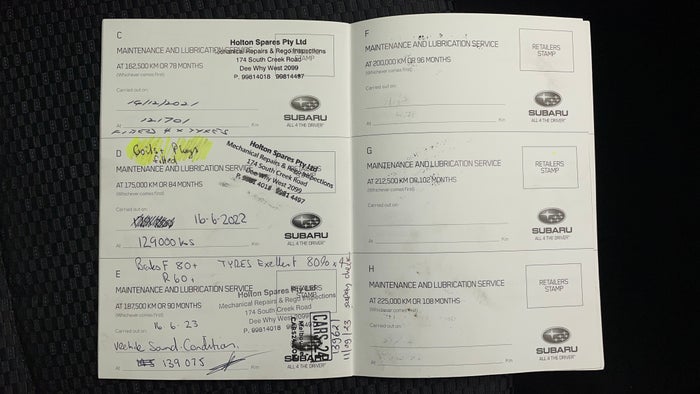 C
Holton Spares Pty Ltd
MAINTENANCE AND LUBRICATION SERVICE
Mechanical Repairs & Rego Inspections
AT 162,500 KM OR 78 MONTHS
174 South Creek Road
(Whichever comes first)
Dee Why West 2099
P. 99814018 99814497
Carried out on:
14/12/2021
121701
At Km
SUBARU
ALL 4 THE DRIVER
FITTED 4 X TYRES
D
Coils + Plugs
fitted
Holton Spares Pty Ltd
Mechanical Repairs & Rego Inspections
174 South Creek Road
Dee Why West 2099
4018 9981 4497
MAINTENANCE AND LUBRICATION SERVICE
AT 175,000 KM OR 84 MONTHS
(Whichever comes first)
Carried out on:
16-6-2022
129000 ks
At Km
SUBARU
ALL 4 THE DRIVER
F 80+ TYRES Excellent 80% x 4
R 60+
E
Holton Spares Pty Ltd
STAMP
MAINTENANCE AND LUBRICATION SERVICE
Mechanical Repairs & Rego Inspections
AT 187,500 KM OR 90 MONTHS
174 South Creek Road
(Whichever comes first)
Dee Why West 2099
P. 99814018 99814497
Carried out on:
16-6-23
Vehicle Sound Condition.
At 139075 Km
CARS24
SUBARU
ALL 4 THE DRIVER
139621
11/09/23 safety check
F
MAINTENANCE AND LUBRICATION SERVICE
AT 200,000 KM OR 96 MONTHS
(Whichever comes first)
RETAILERS
STAMP
Carried out on:
At Km
SUBARU
ALL 4 THE DRIVER
G
MAINTENANCE AND LUBRICATION SERVICE
AT 212,500 KM OR 102 MONTHS
(Whichever comes first)
RETAILERS
STAMP
Carried out on:
At Km
SUBARU
ALL 4 THE DRIVER
H
MAINTENANCE AND LUBRICATION SERVICE
AT 225,000 KM OR 108 MONTHS
(Whichever comes first)
RETAILERS
STAMP
Carried out on:
At Km
SUBARU
ALL 4 THE DRIVER